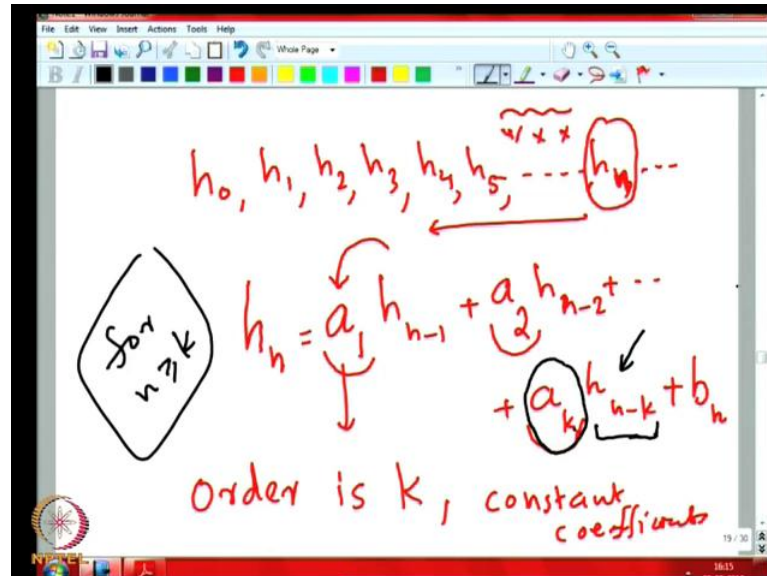 File Edit View Insert Actions Tools Help
Whole Page
B I
h₀, h₁, h₂, h₃, h₄, h₅, ---- hₙ, ---
for n ≥ k
hₙ = a₁ hₙ₋₁ + a₂ hₙ₋₂ + ---
+ aₖ hₙ₋ₖ + bₙ
Order is k, constant
coefficients
NPTEL
19 / 30
16:15